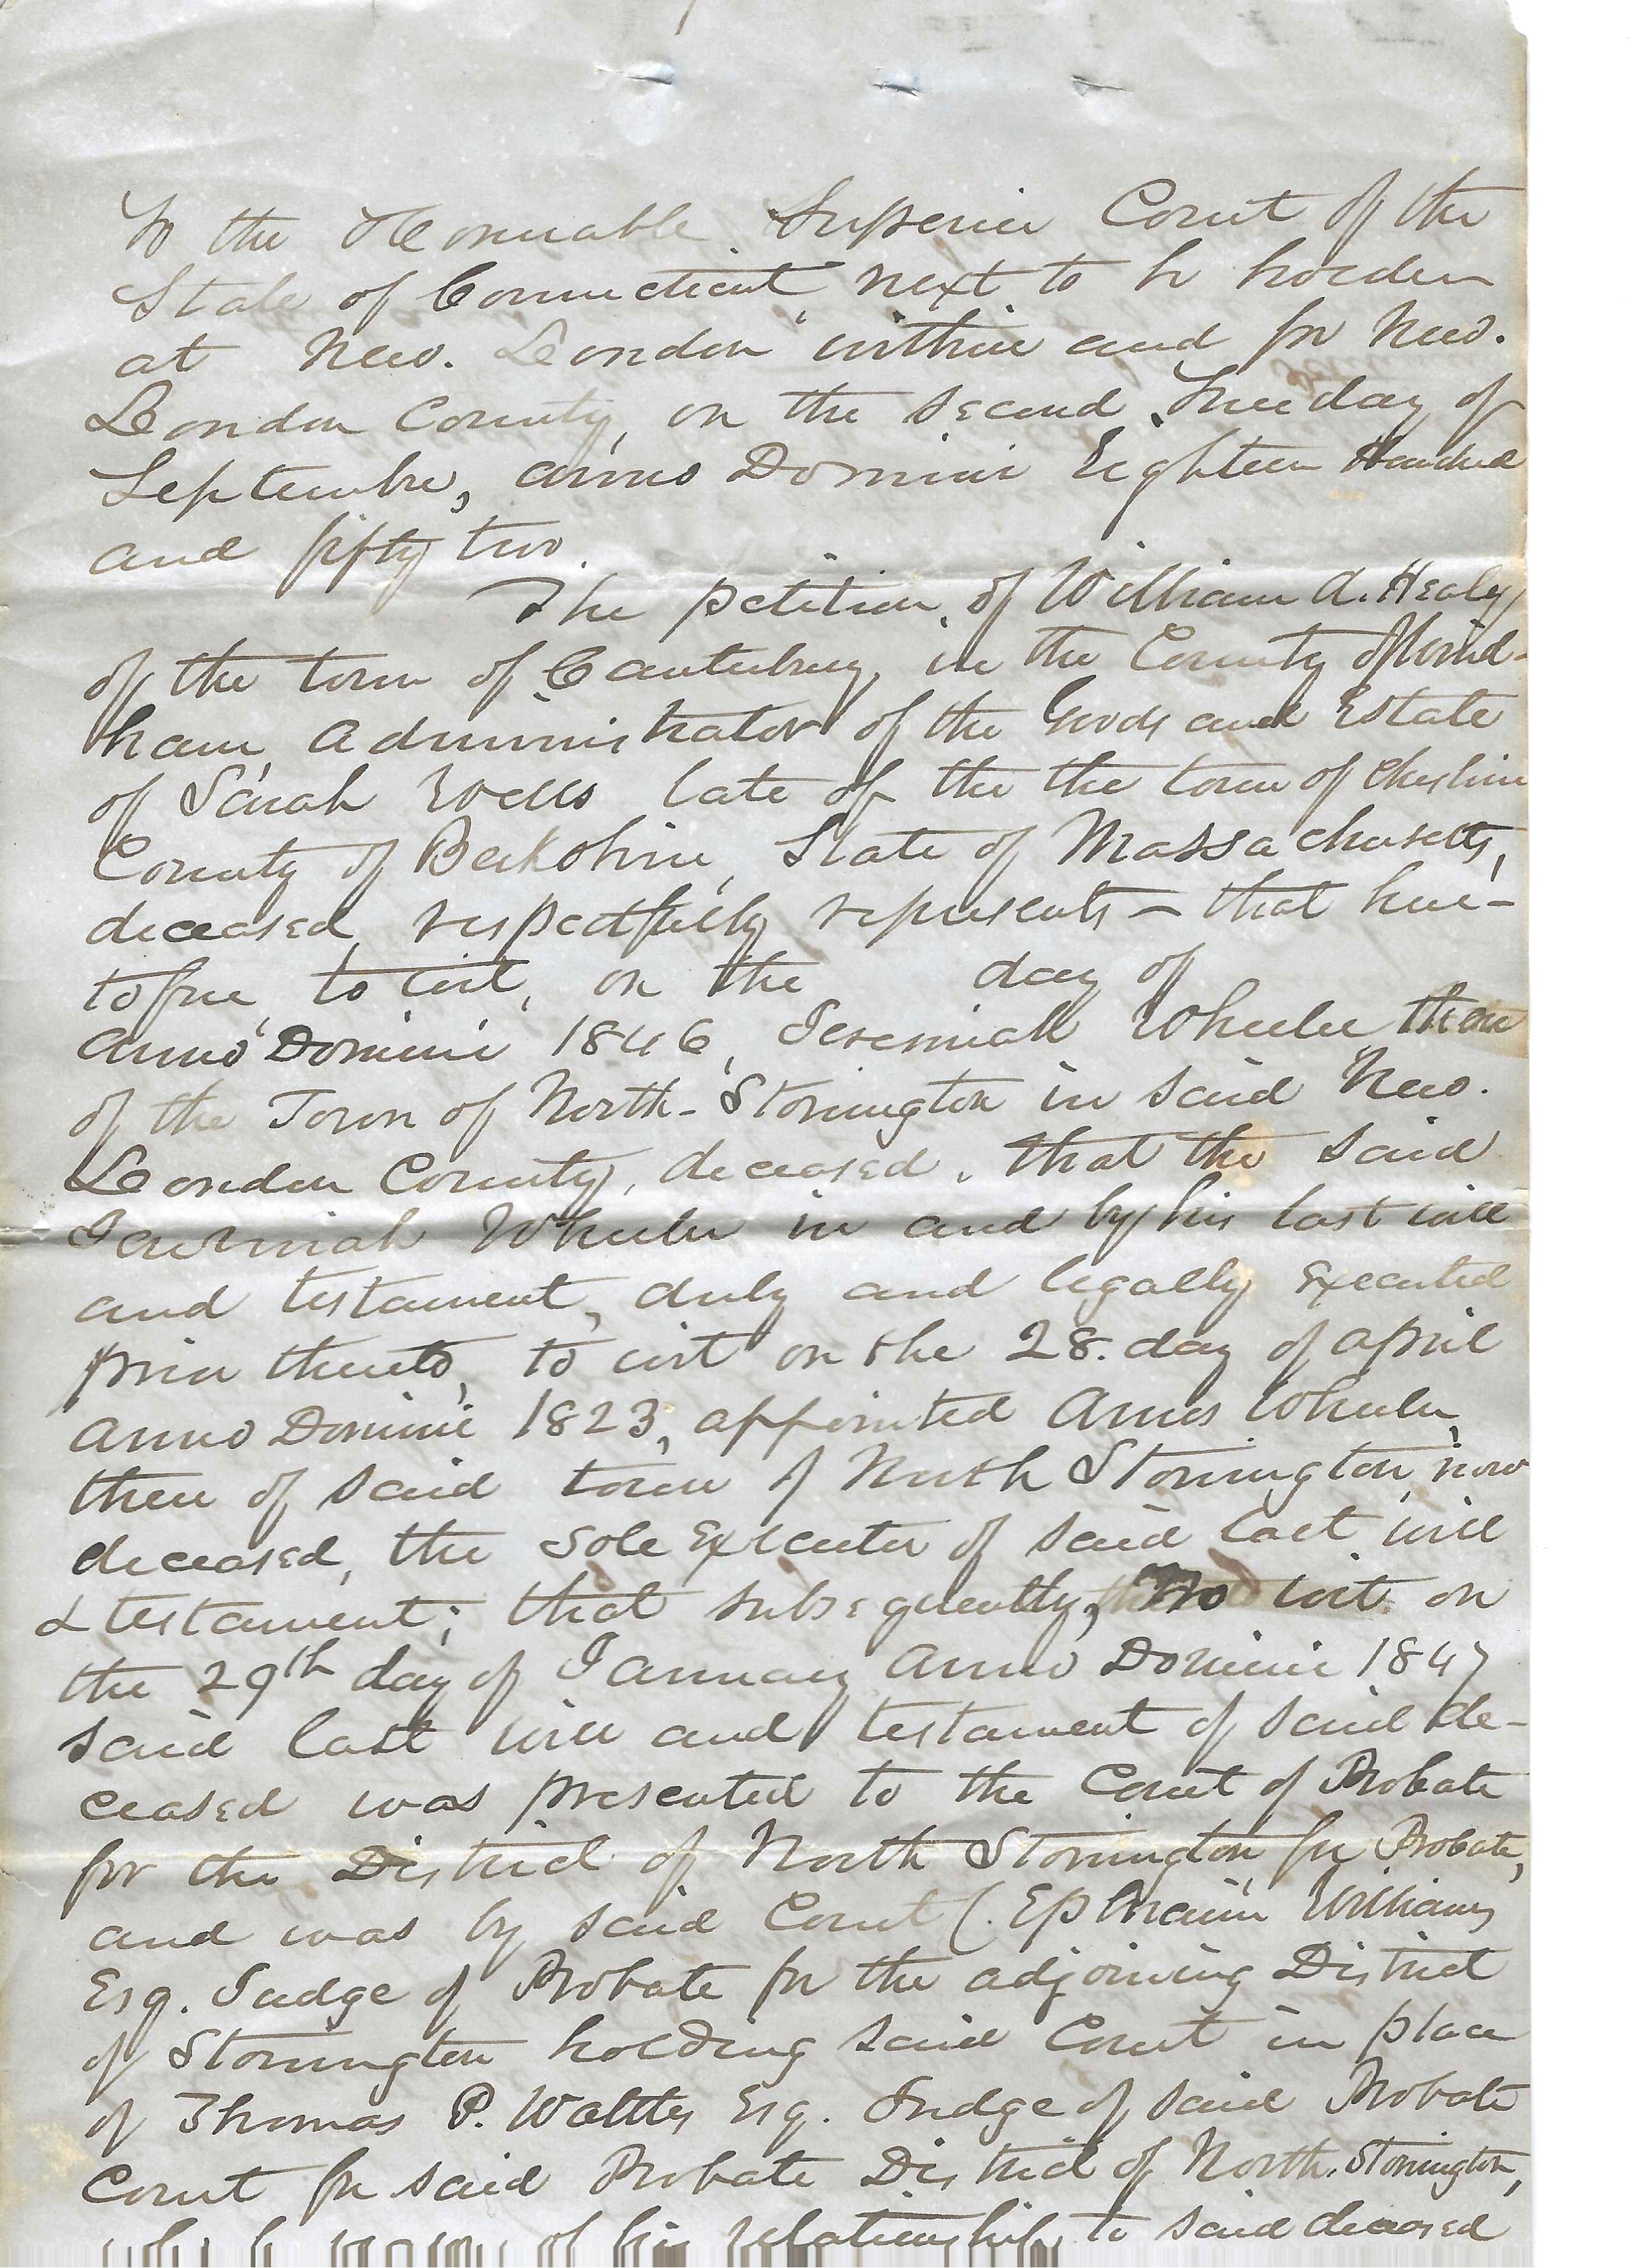 To the Honourable Superior Court of the
State of Connecticut next to be holden
at New. London within and for New.
London County, on the second Tuesday of
September, anno Domini Eighteen Hundred
and fifty two.
The petition of William A. Healy
of the town of Canterbury, in the County of Wind-
ham, Administrator of the Goods and Estate
of Sarah Wells late of the the town of Cheshire
County of Berkshire, State of Massachusetts,
deceased, respectfully represents - that here-
tofore, to wit, on the day of
Anno Domini 1846, Jeremiah Wheeler then
of the Town of North-Stonington in said New.
London County, deceased, that the said
Jeremiah Wheeler in and by his last will
and testament, duly and legally Executed
prior thereto, to wit on the 28. day of April
Anno Domini 1823, appointed Amos Wheeler,
then of said town of North Stonington, now
deceased, the sole Executor of said last will
& testament; that subsequently, to wit on
the 29th day of January Anno Domini 1847
said last will and testament of said de-
ceased was presented to the Court of Probate
for the District of North Stonington, for Probate,
and was by said Court (Ephraim Williams
Esq. Judge of Probate for the adjoining District
of Stonington holding said Court in place
of Thomas P. Wattles Esq. Judge of said Probate
Court for said Probate District of North. Stonington,
who by reason of his relationship to said deceased